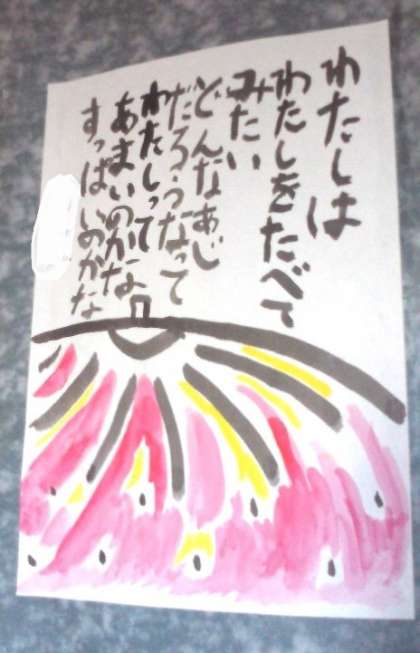 わたしは
わたしをたべて
みたい
どんなあじ
だろうなって
わたしって
あまいのかな
すっぱいのかな